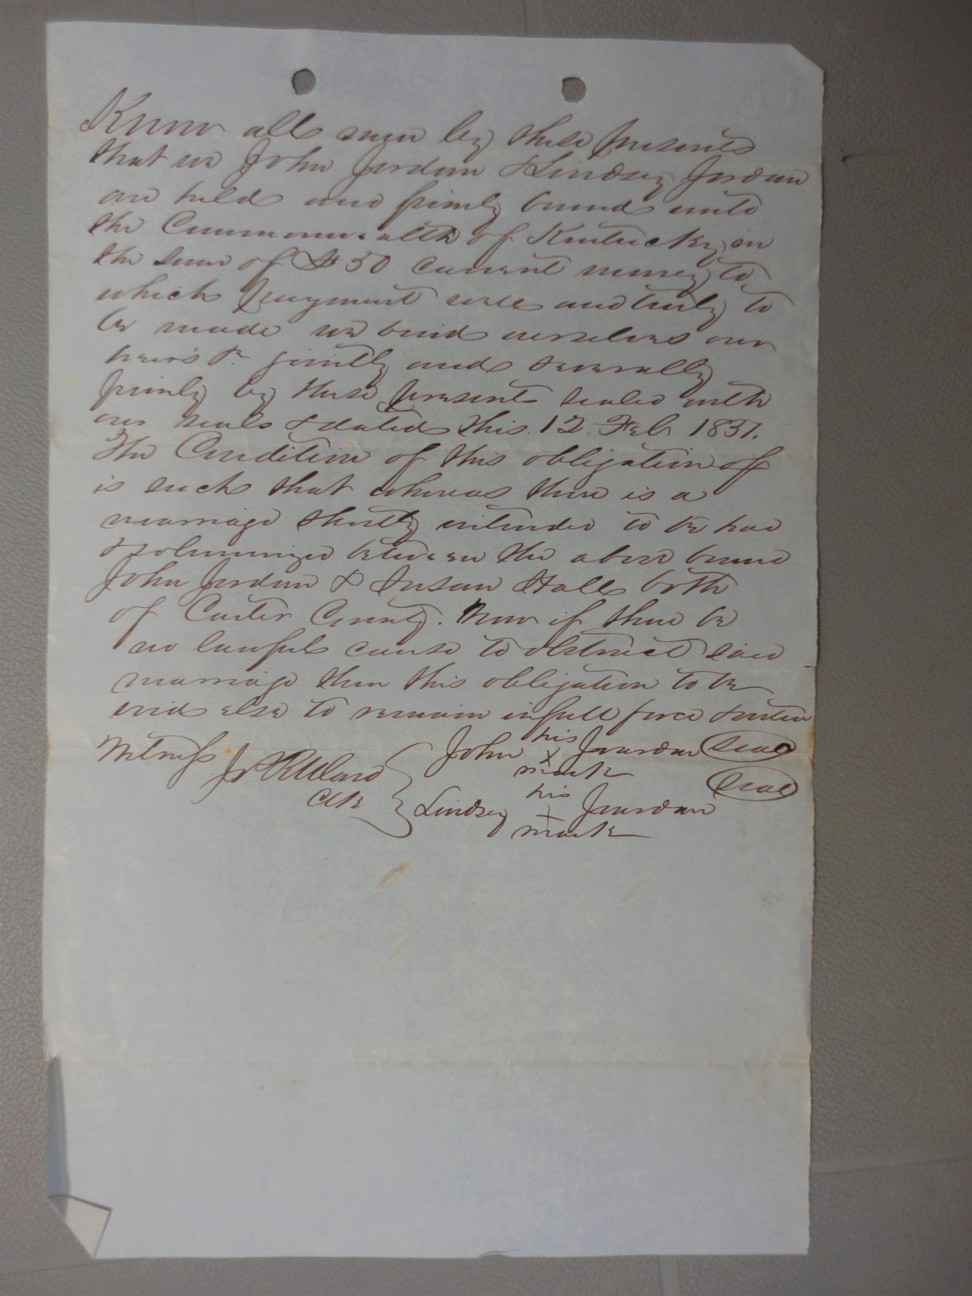 Know all men by these presents
that we John Jordan & Lindsey Jordan
are held and firmly bound unto
the Commonwealth of Kentucky, in
the sum of $50 current money to
which payment well and truly to
be made we bind ourselves our
heirs &c jointly and severally
firmly by these presents sealed with
our seals & dated this. 12. Feb 1851.
The Condition of this obligation of
is such that whereas there is a
marriage shortly intended to be had
& solemnized between the above bound
John Jordan & Susan Halls both
of Carter County. Now if there be
no lawful cause to obstruct said
marriage then this obligation to be
void else to remain in full force & virtue
Witness John his X mark Jourdan Seal
Ward Seal
Clk Lindsey his + mark Jourdan